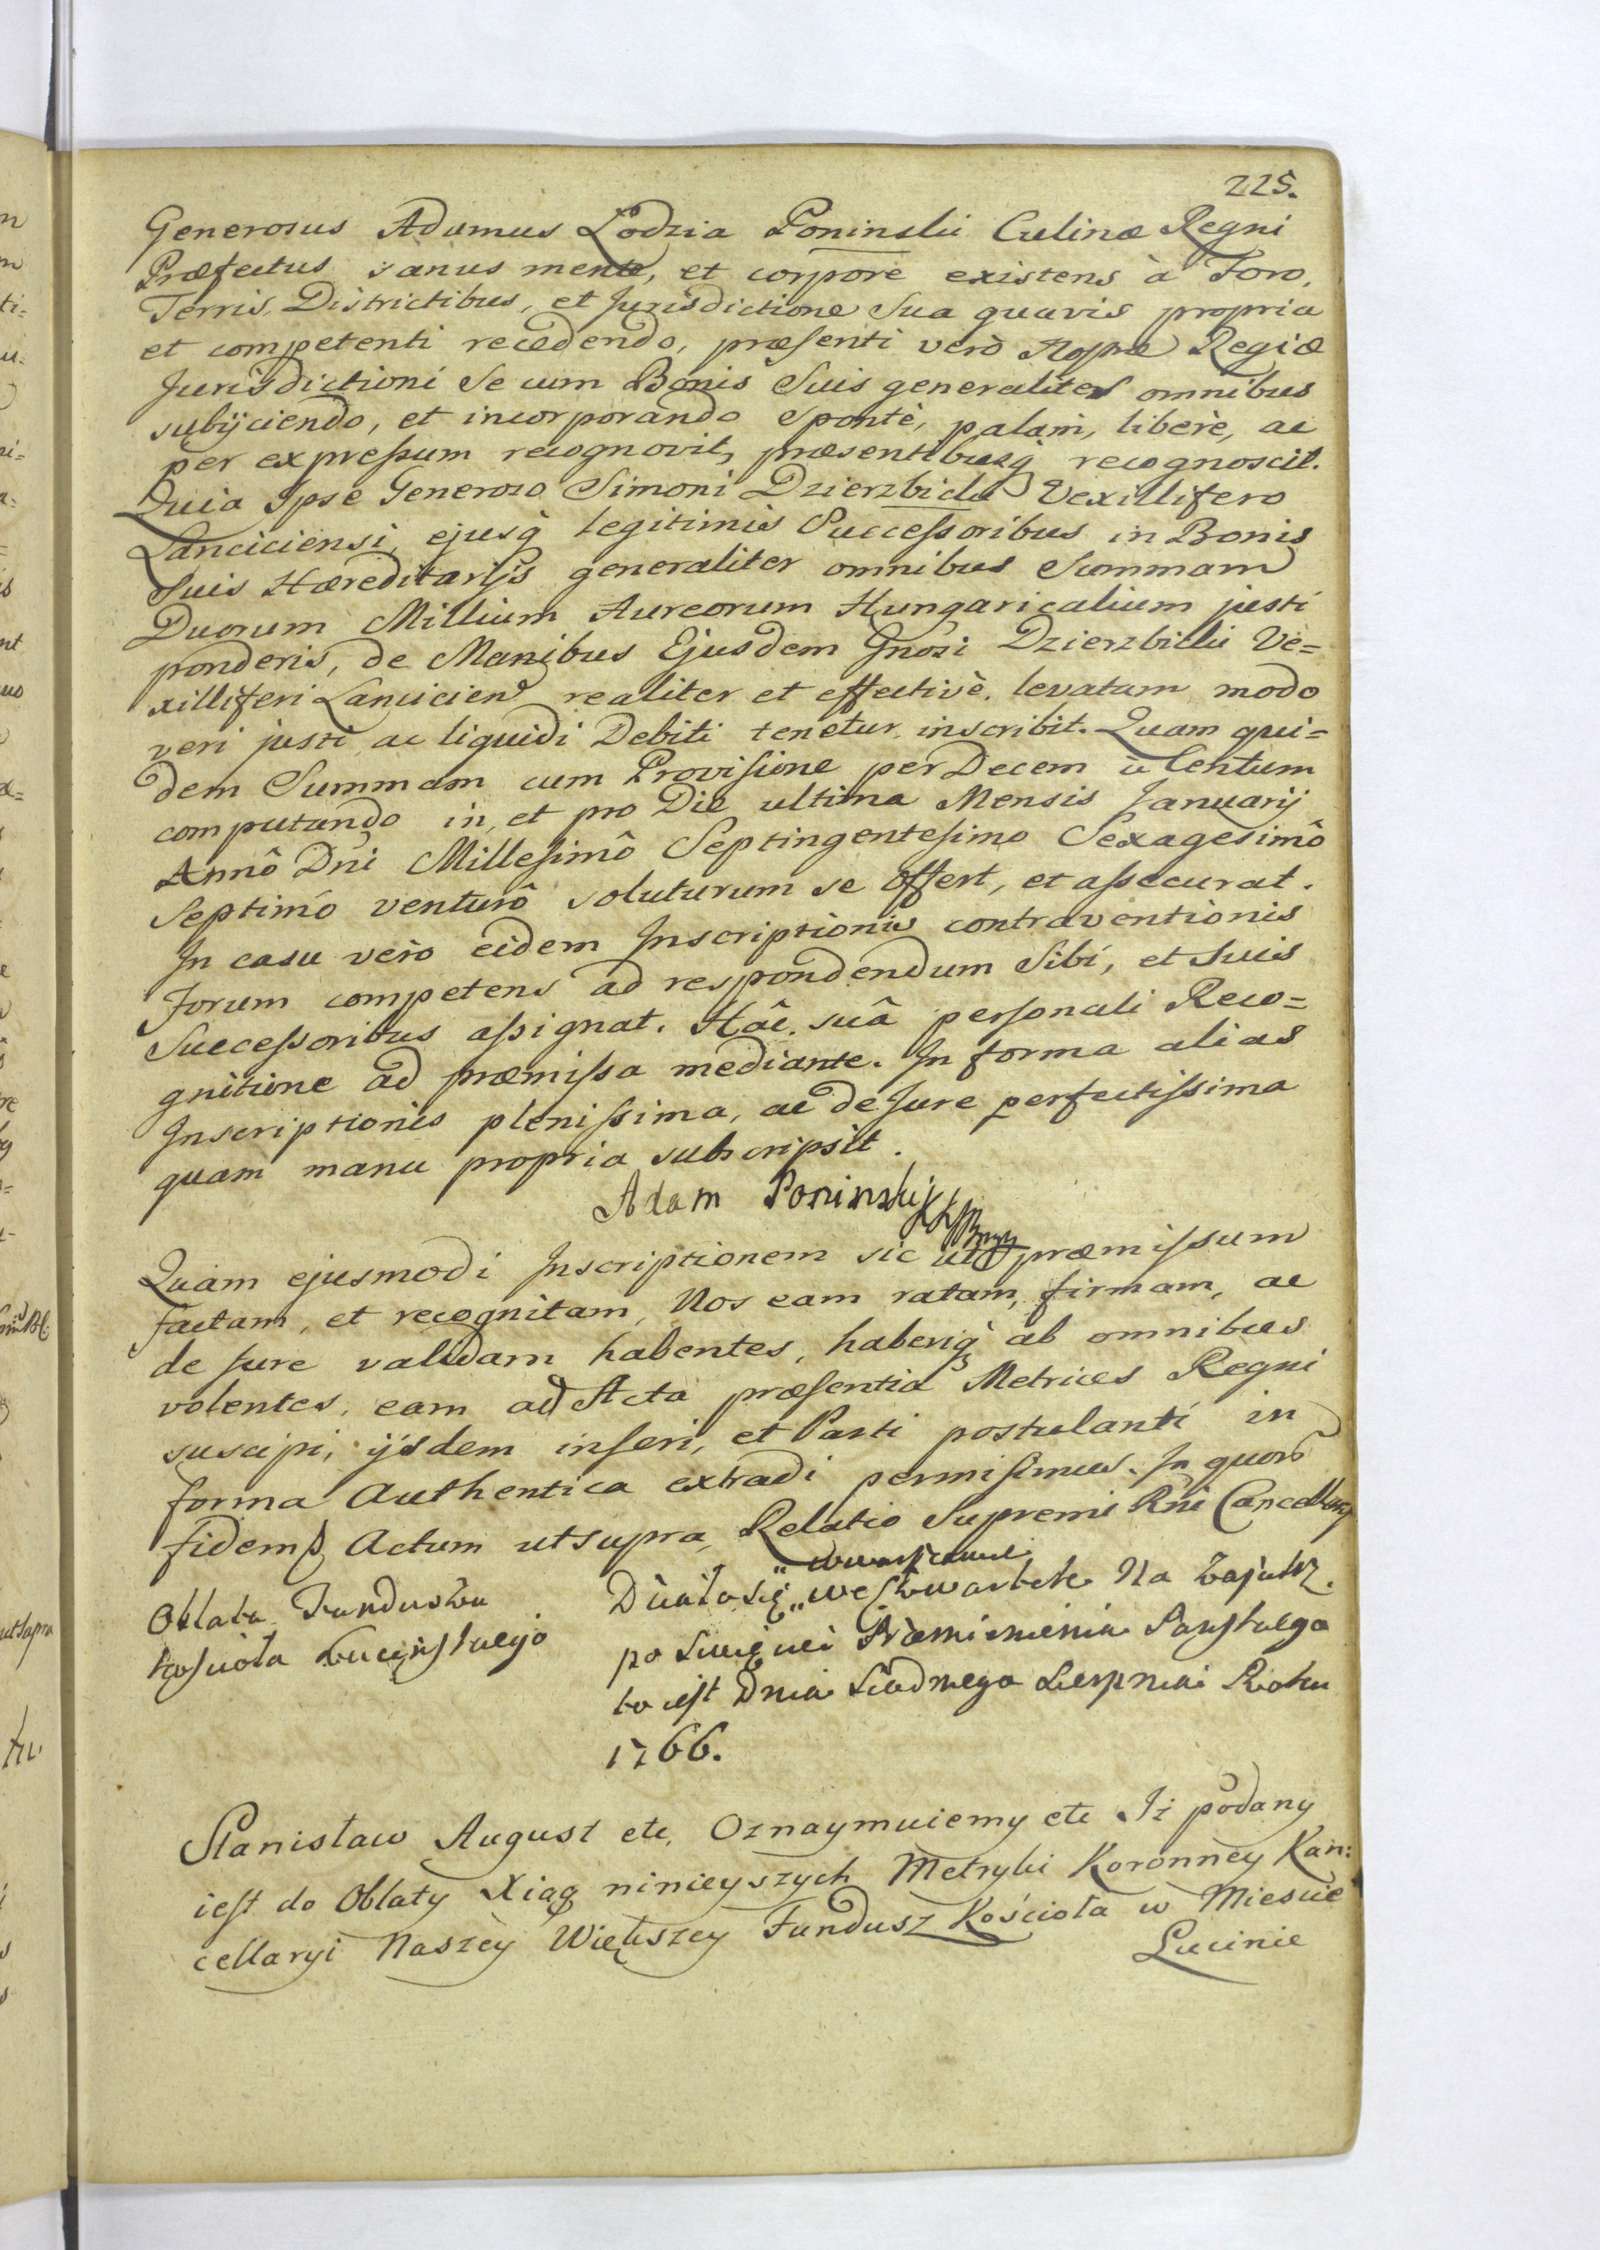 225.
Generosus Adamus Lodzia Poninski Culinæ Regni
Præfectus sanus mente, et corpore existens à Foro,
Terris, Districtibus, et Jurisdictione Sua quavis propria
et competenti recedendo, præsenti verò Regiæ
Jurisdictioni Se cum Bonis Suis generaliter omnibus
subijciendo, et incorporando Spontè, palam, liberè, ac
per expressum recognovit, præsentibusq recognoscit.
Quia Ipse Generoso Simoni Dzierzbicki Vexillifero
Lanciciensi, ejusq legitimis Successoribus in Bonis
Suis Hæreditarijs generaliter omnibus Summam
Duorum Millium Aureorum Hungaricalium justi
ponderis, de Manibus Ejusdem Gnosi Dzierzbicki Ve=
xilliferi Lancicien realiter et effectivè levatam modo
veri justi ac liquidi Debiti tenetur inscribit. Quam qui=
dem Summam cum Provisione per Decem à Centum
computando in, et pro Die ultima Mensis Januarij
Annô Dni Millesimô Septingentesimo Sexagesimô
Septimo venturô soluturum se offert, et assecurat.
In casu verò eidem Inscriptionis contraventionis
Forum competens ad respondendum Sibi, et Suis
Successoribus assignat. Hâc suâ personali Reco=
gnitione ad præmissa mediante. In forma alias
Inscriptionis plenissima, ac de Jure perfectissima
quam manu propria subscripsit.
Adam Poninski
Quam ejusmodi Inscriptionem sic ut præmissum
Factam, et recognitam, Nos eam ratam, firmam, ac
de Jure validam habentes, haberiq ab omnibus
volentes, eam ad Acta præsentia Metrices Regni
suscipi, ijsdem inseri, et Parti postulanti in
forma Authentica extradi permisimus. In quorõ
fidem Actum ut supra, Relatio Supremi Rni
Oblata Funduszu
Kościoła Lucinskiego
w Warszawie
Działo się we Czwartek Na Zajutrz
po Swięcie Przemienienia Panskiego
to iest Dnia Siodmego Sierpnia Roku
1766.
Stanisław August etc, Oznaymuiemy etc Iż podany
iest do Oblaty Xiąg ninieyszych Metryki Koronney Kan:
cellaryi Naszey Większey Fundusz Kościoła w Miescie
Lucinie